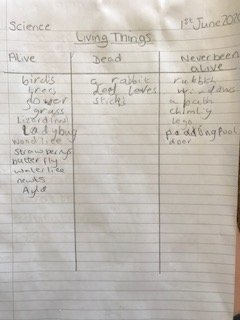 Science 1st June 2020
Living Things
Alive Dead Never been alive
birds a rabbit rubbish
trees dead leaves windows
flower sticks a path
grass chimney
lego
Ladybug paddling Pool
woodlice door
strawberrys
butterfly
waterlice
newts